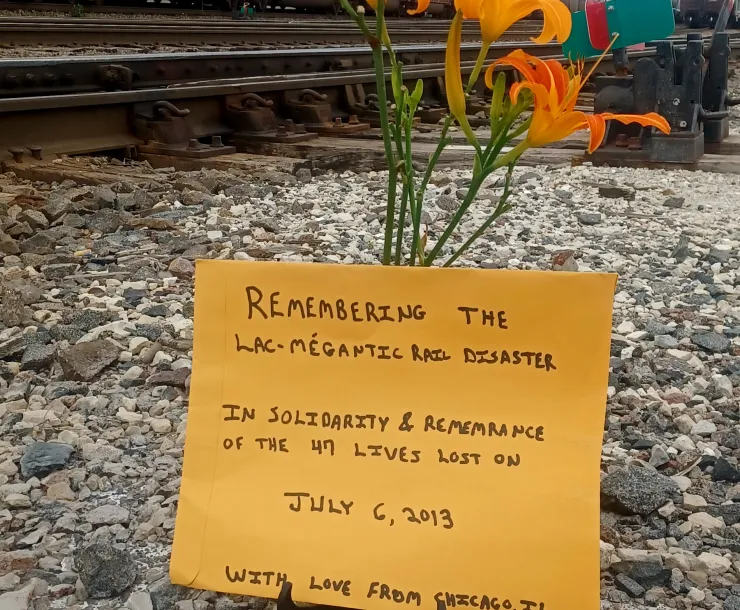 REMEMBERING THE
LAC-MÉGANTIC RAIL DISASTER
IN SOLIDARITY & REMEMRANCE
OF THE 47 LIVES LOST ON
JULY 6, 2013
WITH LOVE FROM CHICAGO, IL